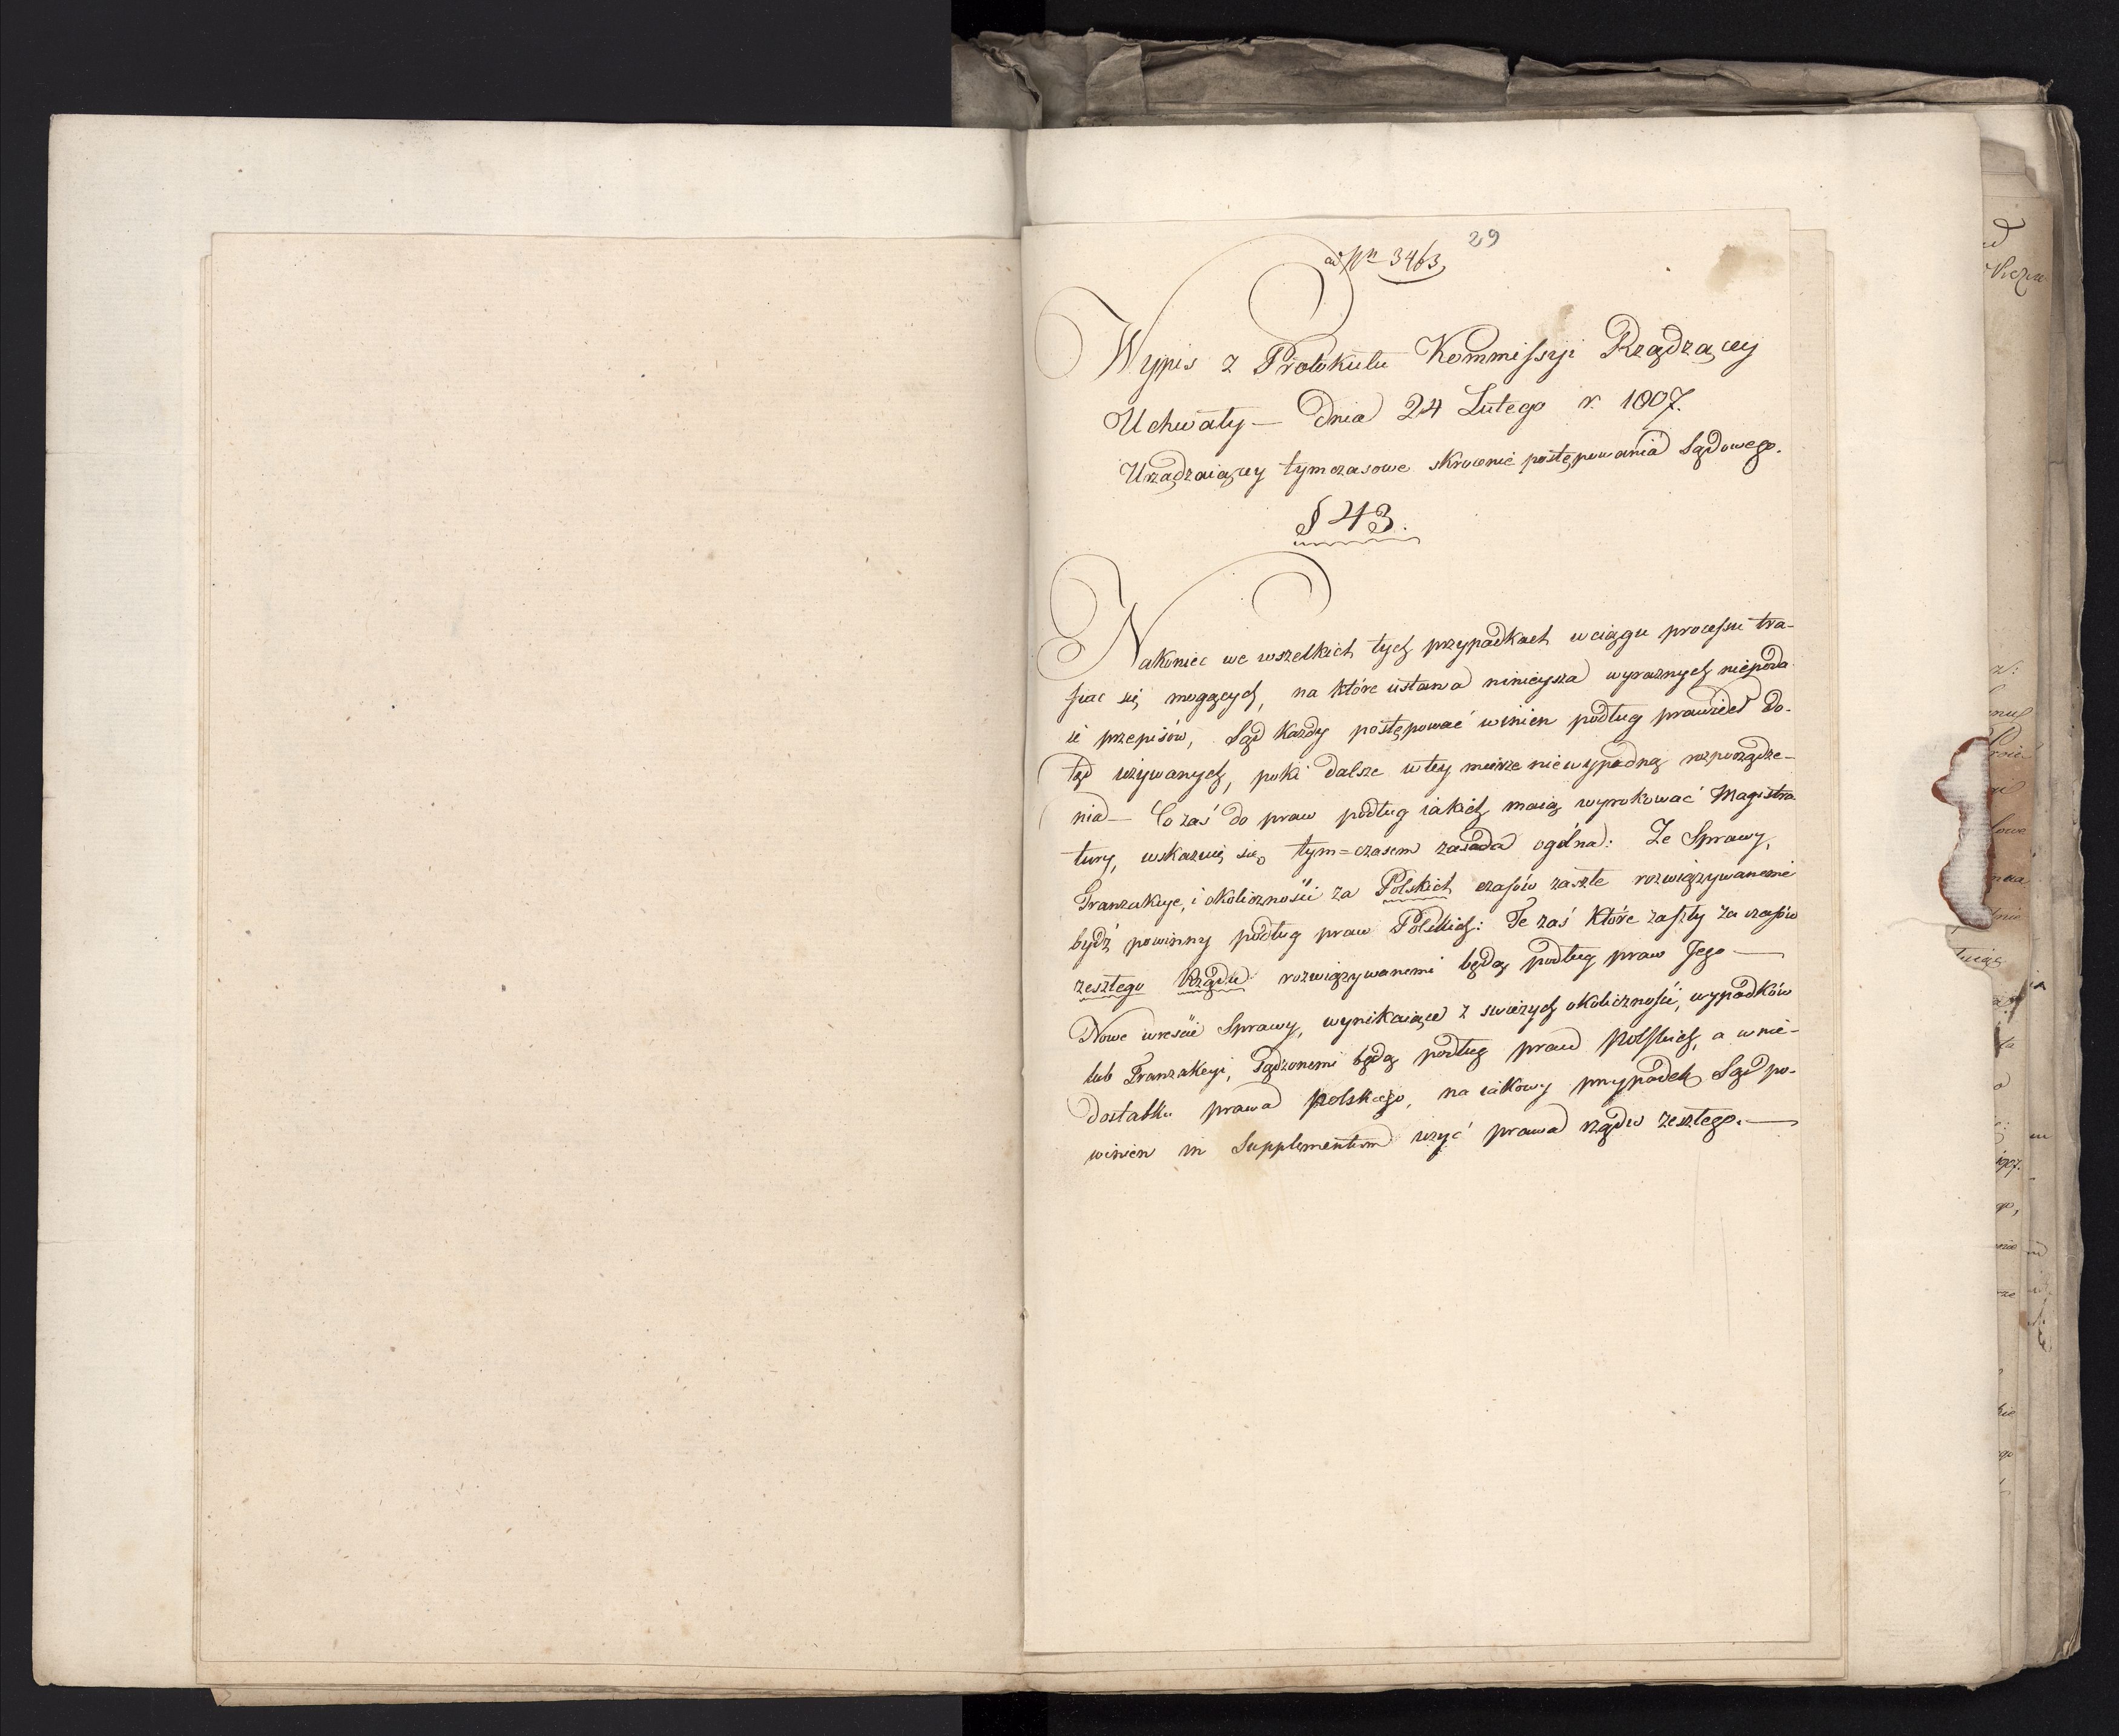 29
ad Nr 3463
Wypis z Protokułu Kommissyi Rządzącey
Uchwały — Dnia 24 Lutego r. 1807.
Urządzaiącey tymczasowe skrócenie postępowania Sądowego.
§ 43.
Nakoniec we wszelkich tych przypadkach w ciągu processu tra-
fiać się mogących, na które ustawa ninieysza wyraznych niepoda-
ie przepisów, Sąd każdy postępować winien podług prawideł do-
tąd używanych, poki dalsze w tey mierze niewypadną rozporządze-
nia — Co zaś do praw podług iakich maią wyrokować Magistra-
tury, wskazuie się tym=czasem zasada ogólna: Ze Sprawy,
Tranzakcye, i okoliczności za Polskich czasów zaszłe rozwiązywanemi
bydź powinny podług praw Polskich: Te zaś które zaszły za czasów
zeszłego Rządu rozwiązywanemi będą podług praw Jego —
Nowe wreście Sprawy, wynikaiące z swieżych okoliczności, wypadków
lub Tranzakcyi, Sądzonemi będą podług praw Polskich, a w nie-
dostatku prawa Polskiego, na iakowy przypadek Sąd po-
winien in Supplementum użyć prawa rządu zeszłego. —